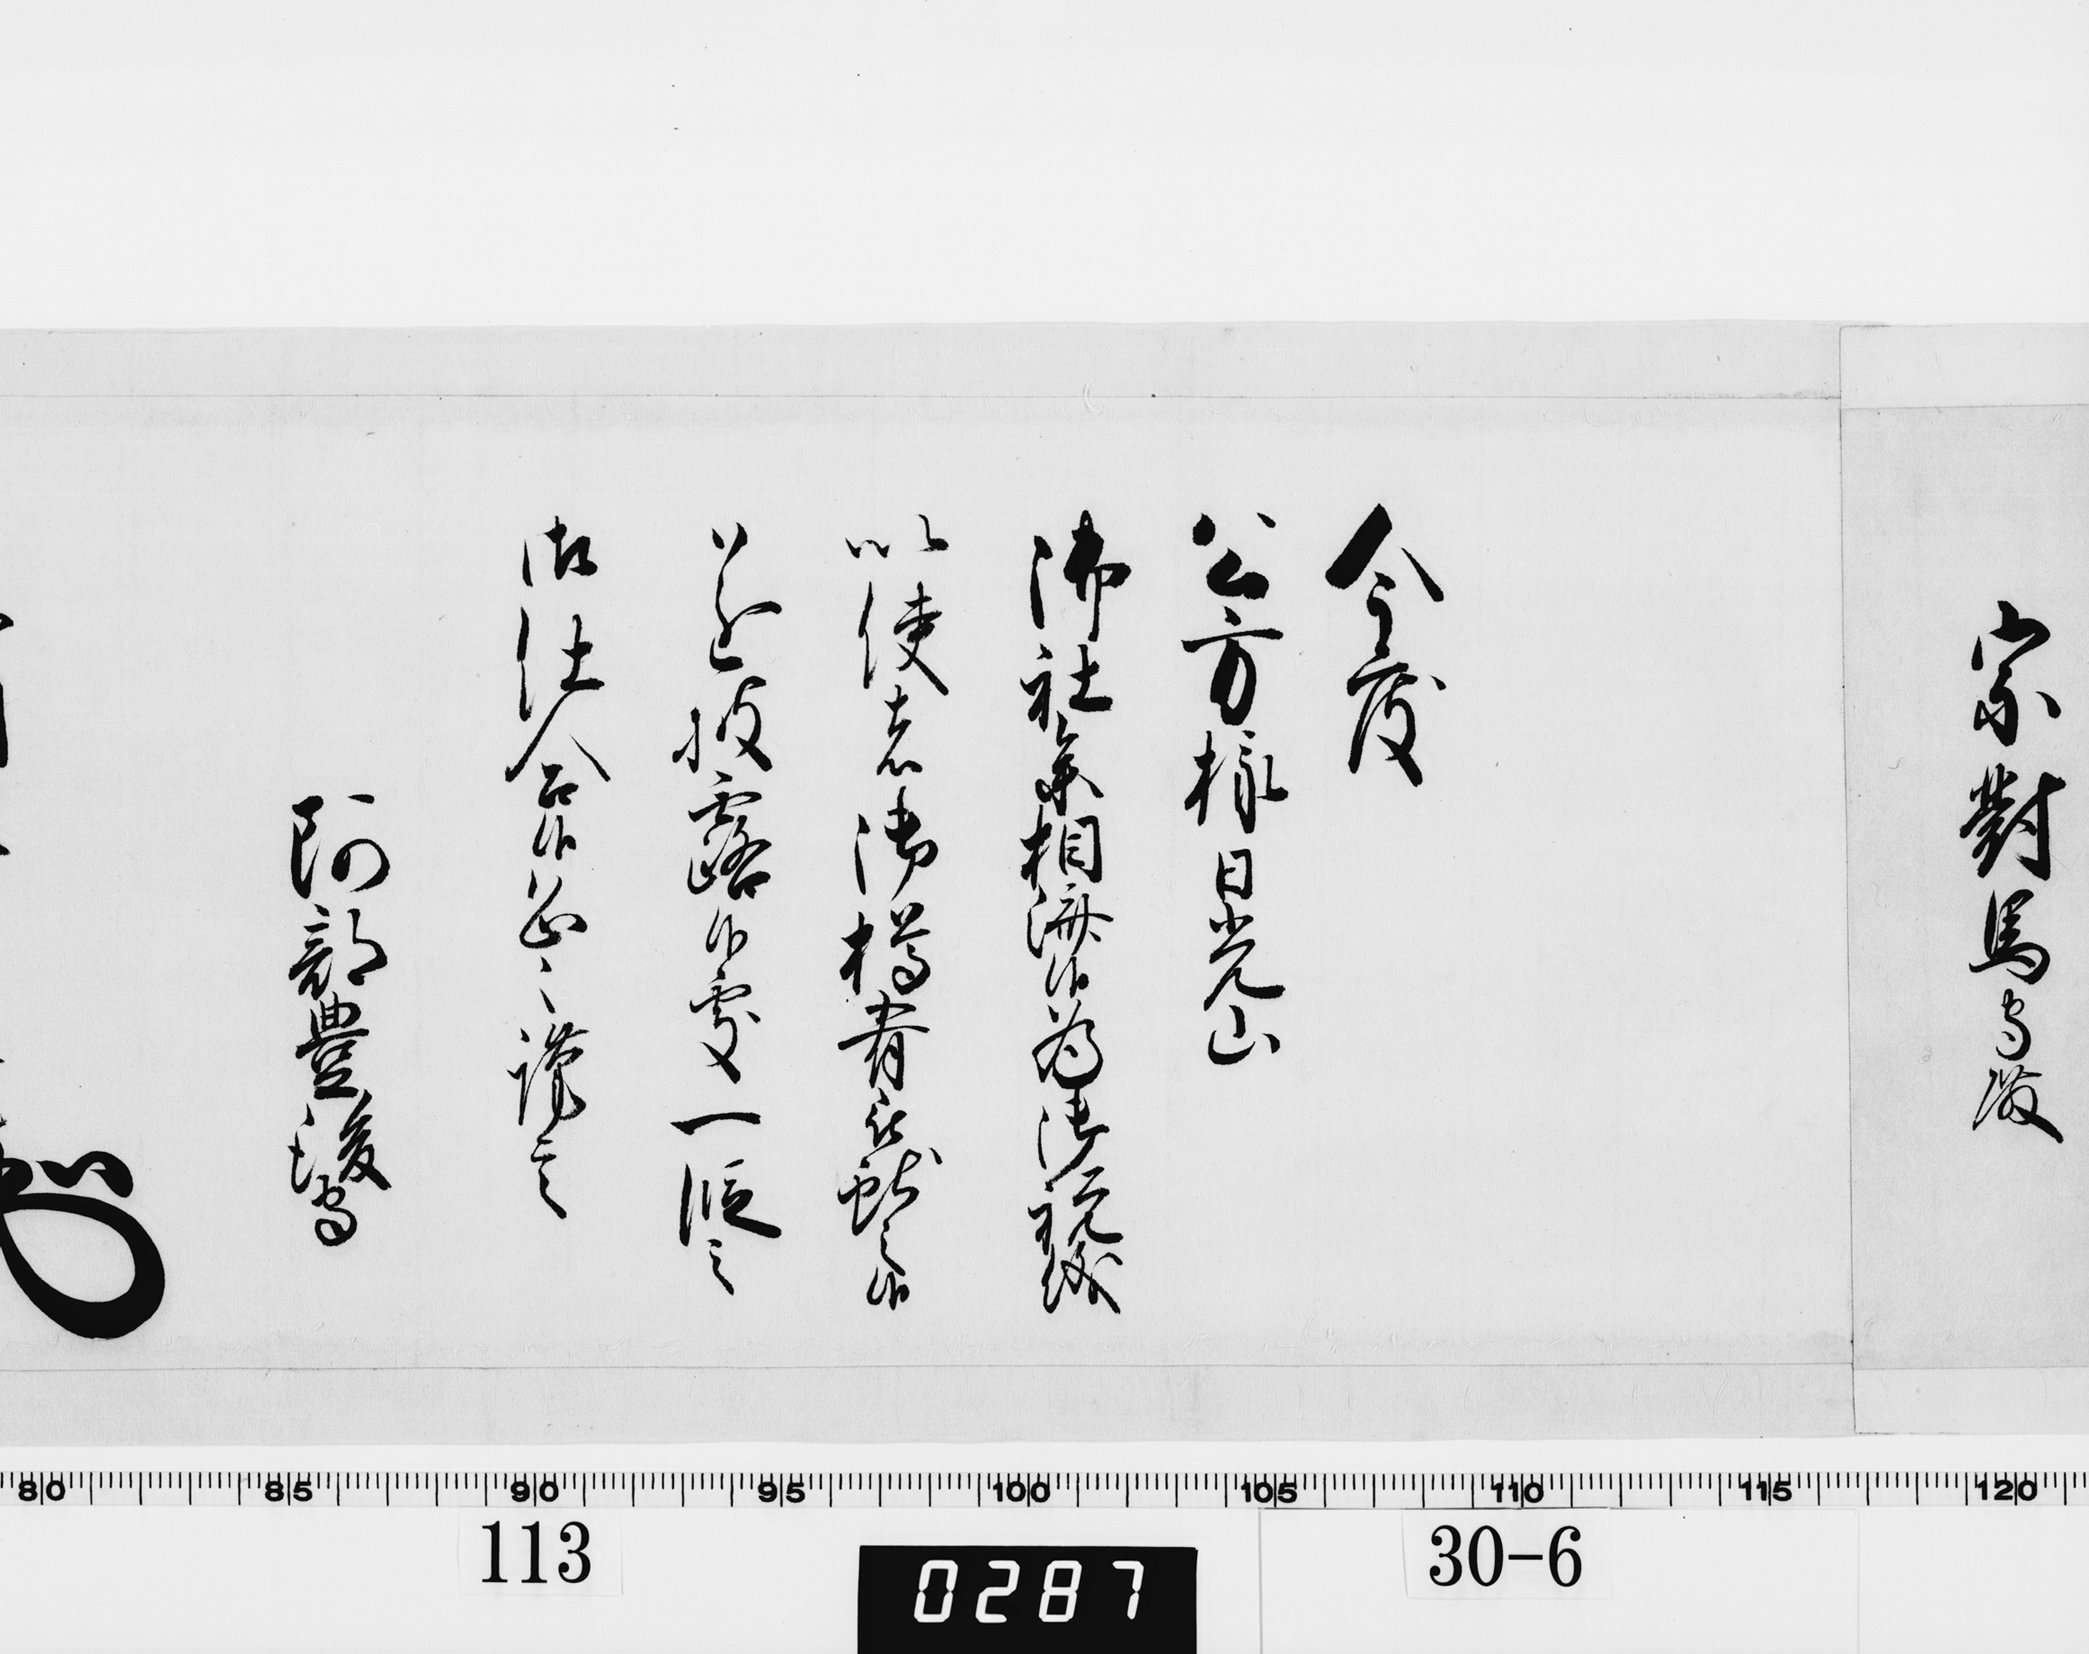 宗對馬守殿
今度
公方様日光山
御社参相済候為御祝儀
以使者御樽肴被献之候
遂披露候處一段之
御仕合候恐々謹言
阿部豊後守
80 85 90 95 100 105 110 115 120
113
0287
30-6